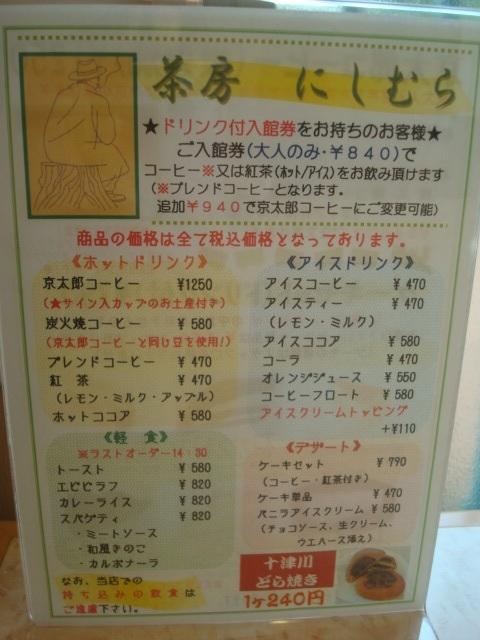 茶房 にしむら
★ドリンク付入館券をお持ちのお客様★
ご入館券(大人のみ・¥840)で
コーヒー※又は紅茶(ホット/アイス)をお飲み頂けます
(※ブレンドコーヒーとなります。
追加¥940で京太郎コーヒーにご変更可能)
商品の価格は全て税込価格となっております。
《ホットドリンク》
京太郎コーヒー ¥1250
(★サイン入カップのお土産付き)
炭火焼コーヒー ¥580
(京太郎コーヒーと同じ豆を使用!)
ブレンドコーヒー ¥470
紅 茶 ¥470
(レモン・ミルク・アップル)
ホットココア ¥580
《アイスドリンク》
アイスコーヒー ¥470
アイスティー ¥470
(レモン・ミルク)
アイスココア ¥580
コーラ ¥470
オレンジジュース ¥550
コーヒーフロート ¥580
アイスクリームトッピング
+¥110
《軽 食》
※ラストオーダー14:30
トースト ¥580
エビピラフ ¥820
カレーライス ¥820
スパゲティ ¥820
・ミートソース
・和風きのこ
・カルボナーラ
なお、当店での
持ち込みの飲食は
ご遠慮下さい。
《デザート》
ケーキセット ¥790
(コーヒー・紅茶付き)
ケーキ単品 ¥470
バニラアイスクリーム ¥580
(チョコソース、生クリーム、
ウエハース添え)
十津川
どら焼き
1ヶ240円